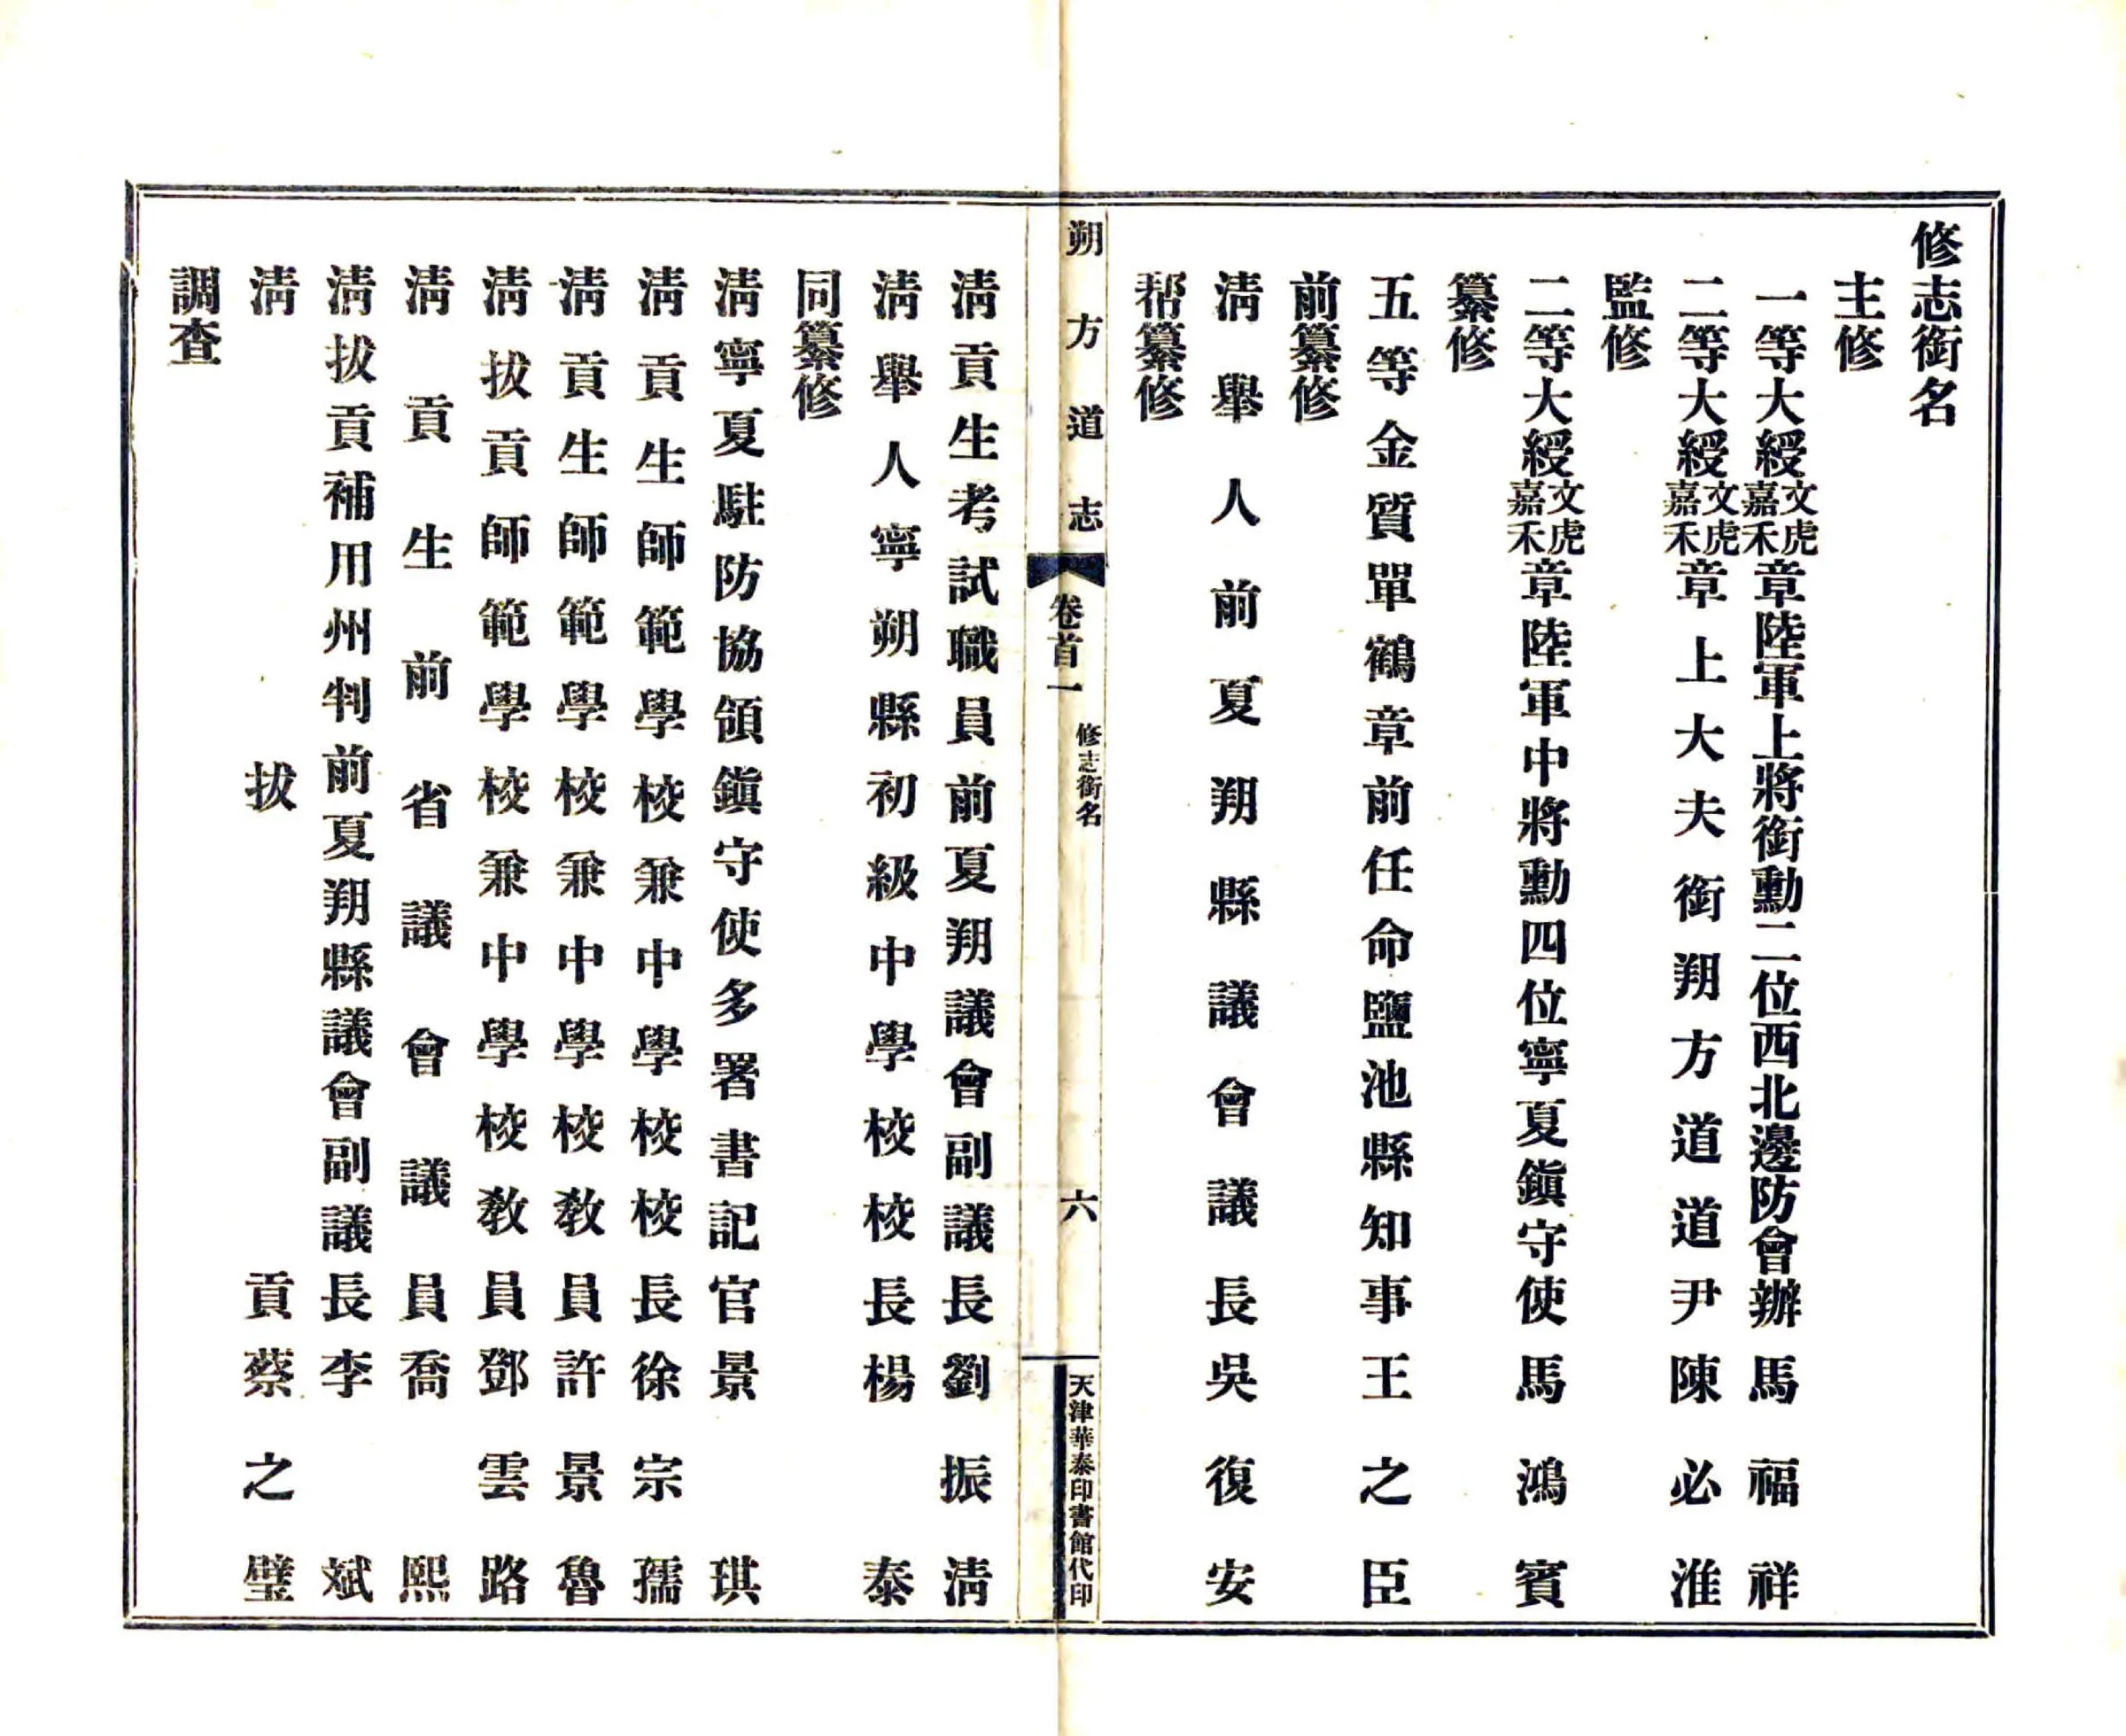 修志銜名
主修
一等大綬文虎嘉禾章陸軍上將銜勳二位西北邊防會辦馬福祥
二等大綬文虎嘉禾章上大夫銜朔方道道尹陳必淮
監修
二等大綬文虎嘉禾章陸軍中將勳四位寧夏鎭守使馬鴻賓
纂修
五等金質單鶴章前任命鹽池縣知事王之臣
前纂修
淸舉人前夏朔縣議會議長吳復安
帮纂修
朔方道志
卷首一
修志銜名
六
天津華泰印書館代印
淸貢生考試職員前夏朔議會副議長劉振淸
淸舉人寧朔縣初級中學校校長楊泰
同纂修
淸寧夏駐防協領鎭守使多署書記官景琪
淸貢生師範學校兼中學校校長徐宗孺
淸貢生師範學校兼中學校敎員許景魯
淸拔貢師範學校兼中學校敎員鄧雲路
淸貢生前省議會議員喬熙
淸拔貢補用州判前夏朔縣議會副議長李斌
淸拔貢蔡之璧
調查